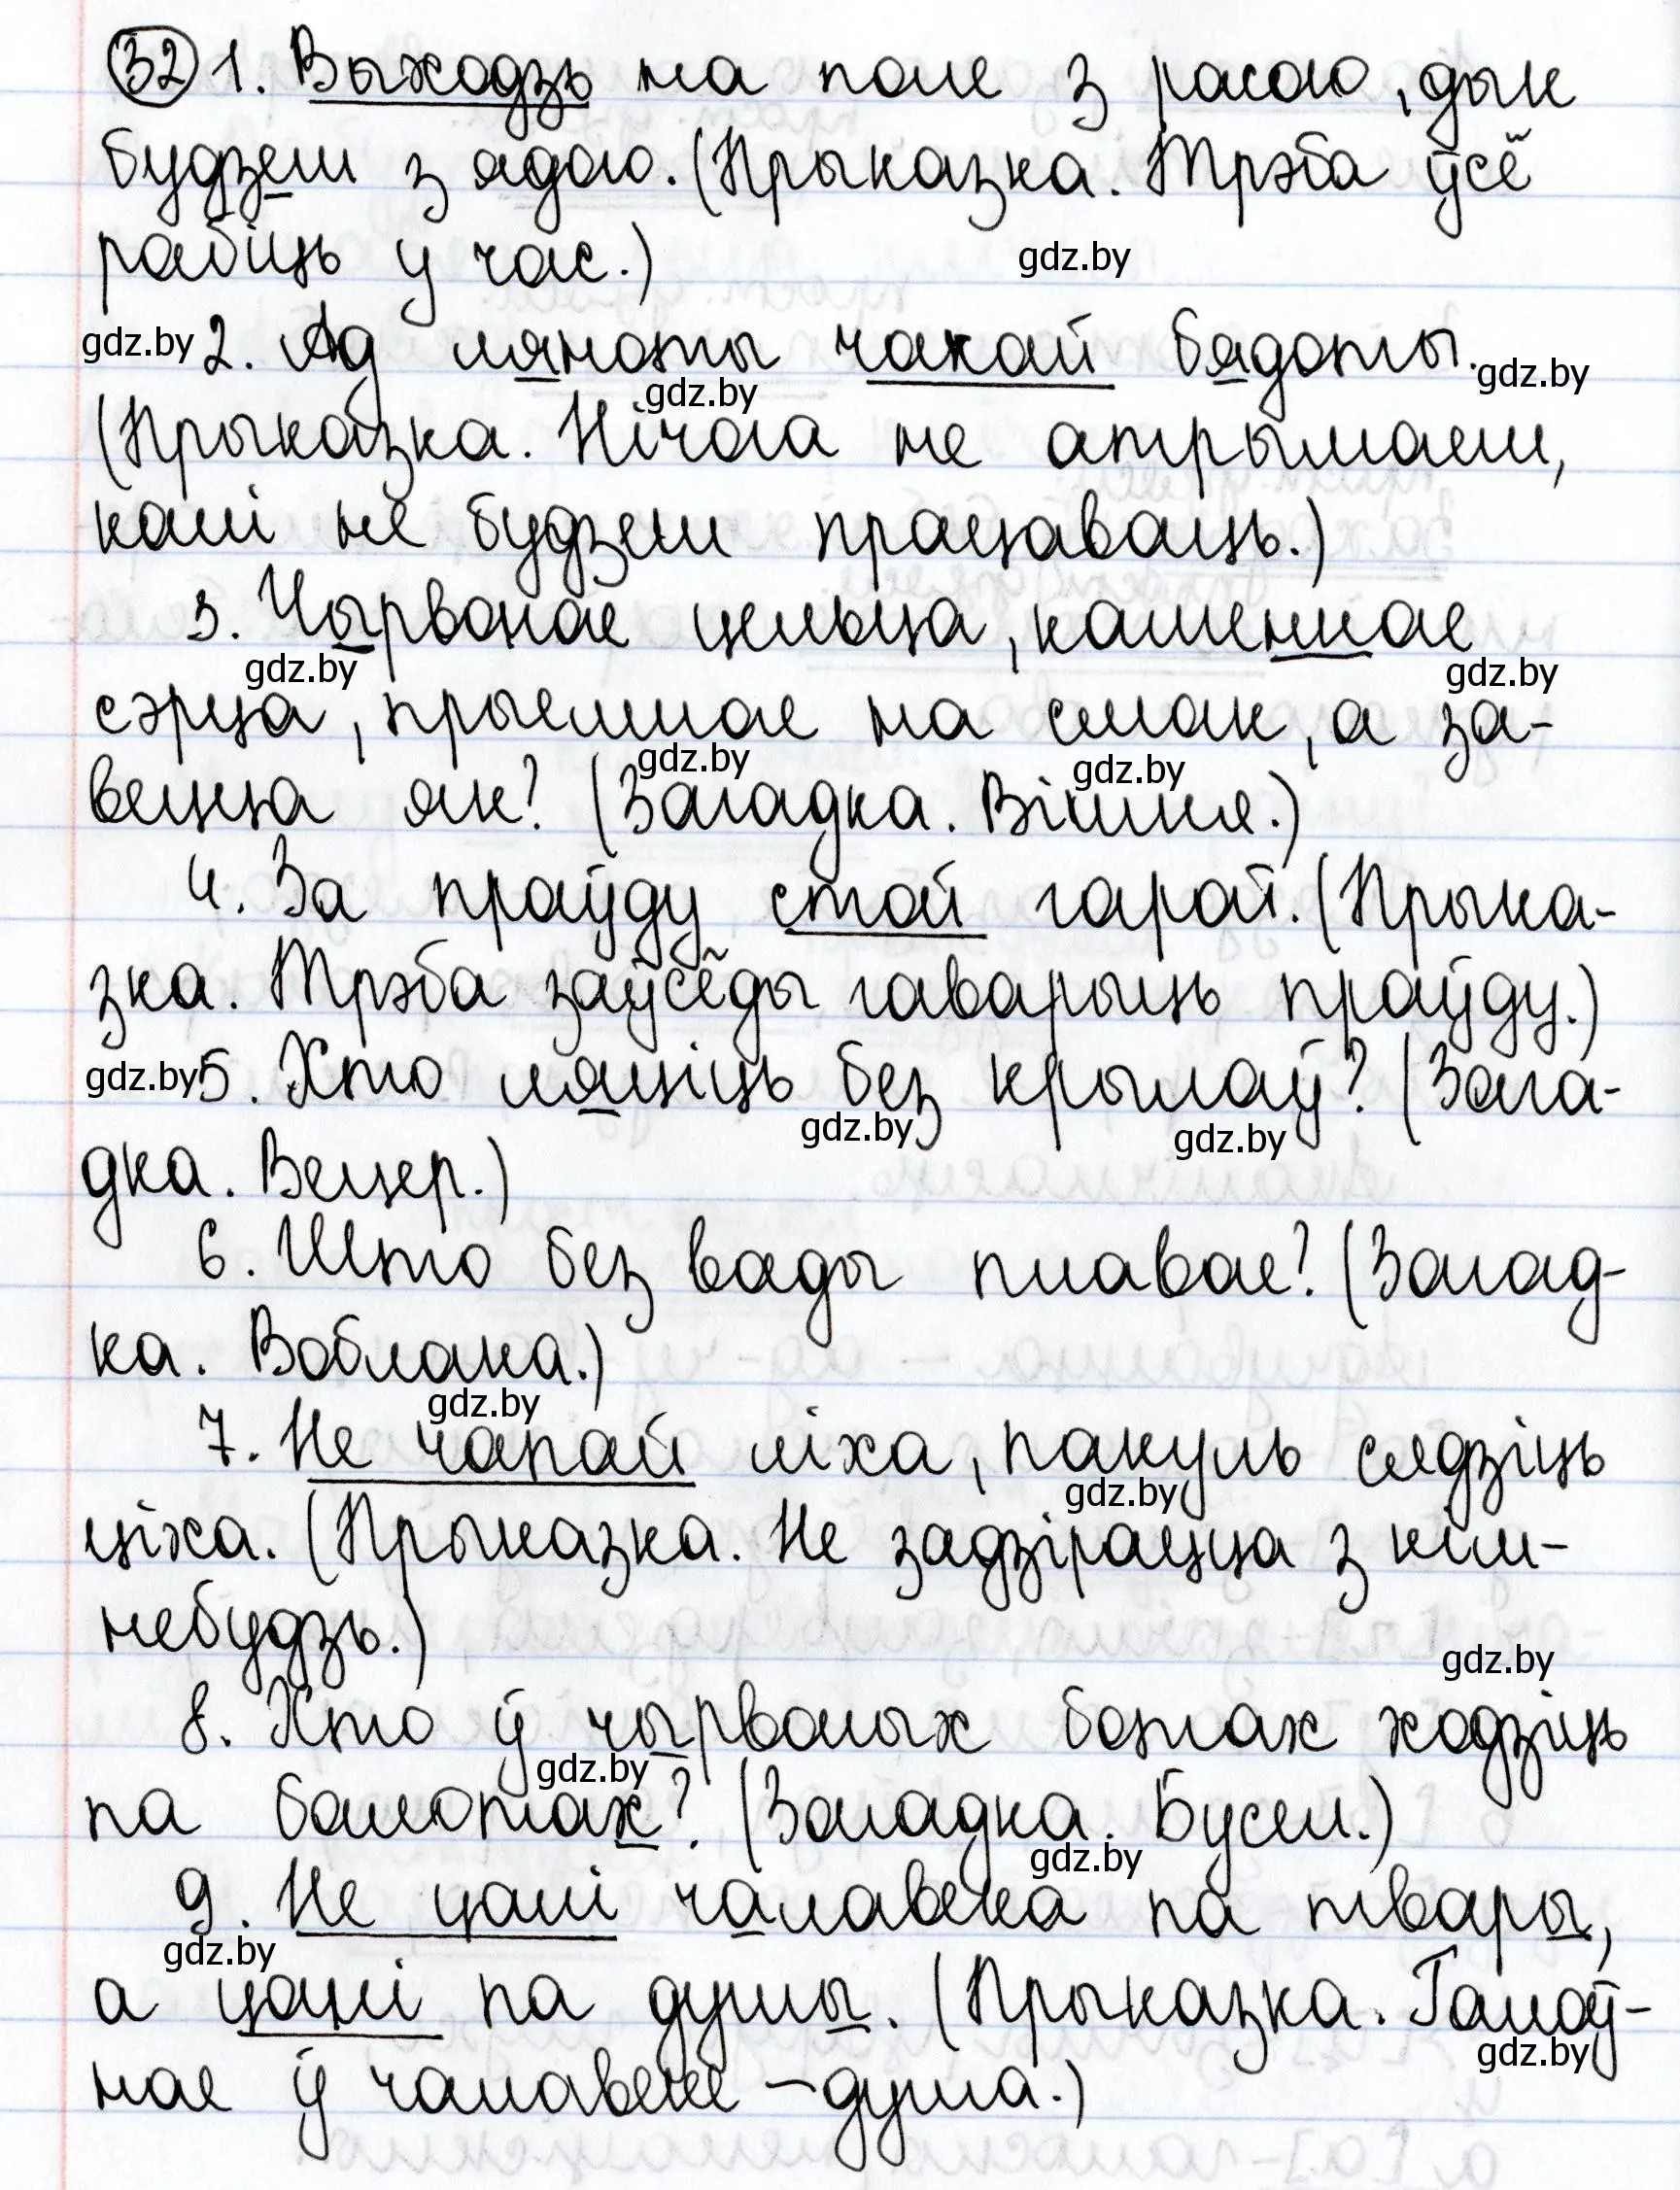 32 1. Выходзь на поле з расою, дык
будзеш з ядою. (Прыказка. Трэба ўсё
рабіць у час.)
gdz.by
gdz.by 2. Ад ляноты чакай бядоты.
gdz.by gdz.by
(Прыказка. Нічога не атрымаеш,
калі не будзеш працаваць.)
3. Чырвонае цельца, каменнае
gdz.by gdz.by
сэрца, прыемнае на смак, а за-
gdz.by gdz.by
вецца як? (Загадка. Вішня.)
4. За праўду стой гарой. (Прыка-
зка. Трэба заўсёды гаварыць праўду.)
gdz.by 5. Хто ляціць без крылаў? (Зага-
gdz.by gdz.by
дка. Вецер.)
6. Што без вады плавае? (Загад-
ка. Воблака.)
gdz.by
7. Не чапай ліха, пакуль сядзіць
gdz.by
ціха. (Прыказка. Не задзірацца з кім-
небудзь.)
gdz.by
8. Хто ў чырвоных ботах ходзіць
gdz.by
па балотах? (Загадка. Бусел.)
gdz.by
9. Не цані чалавека па твары,
gdz.by
а цані па душы. (Прыказка. Галоў-
gdz.by
нае ў чалавеке – душа.)